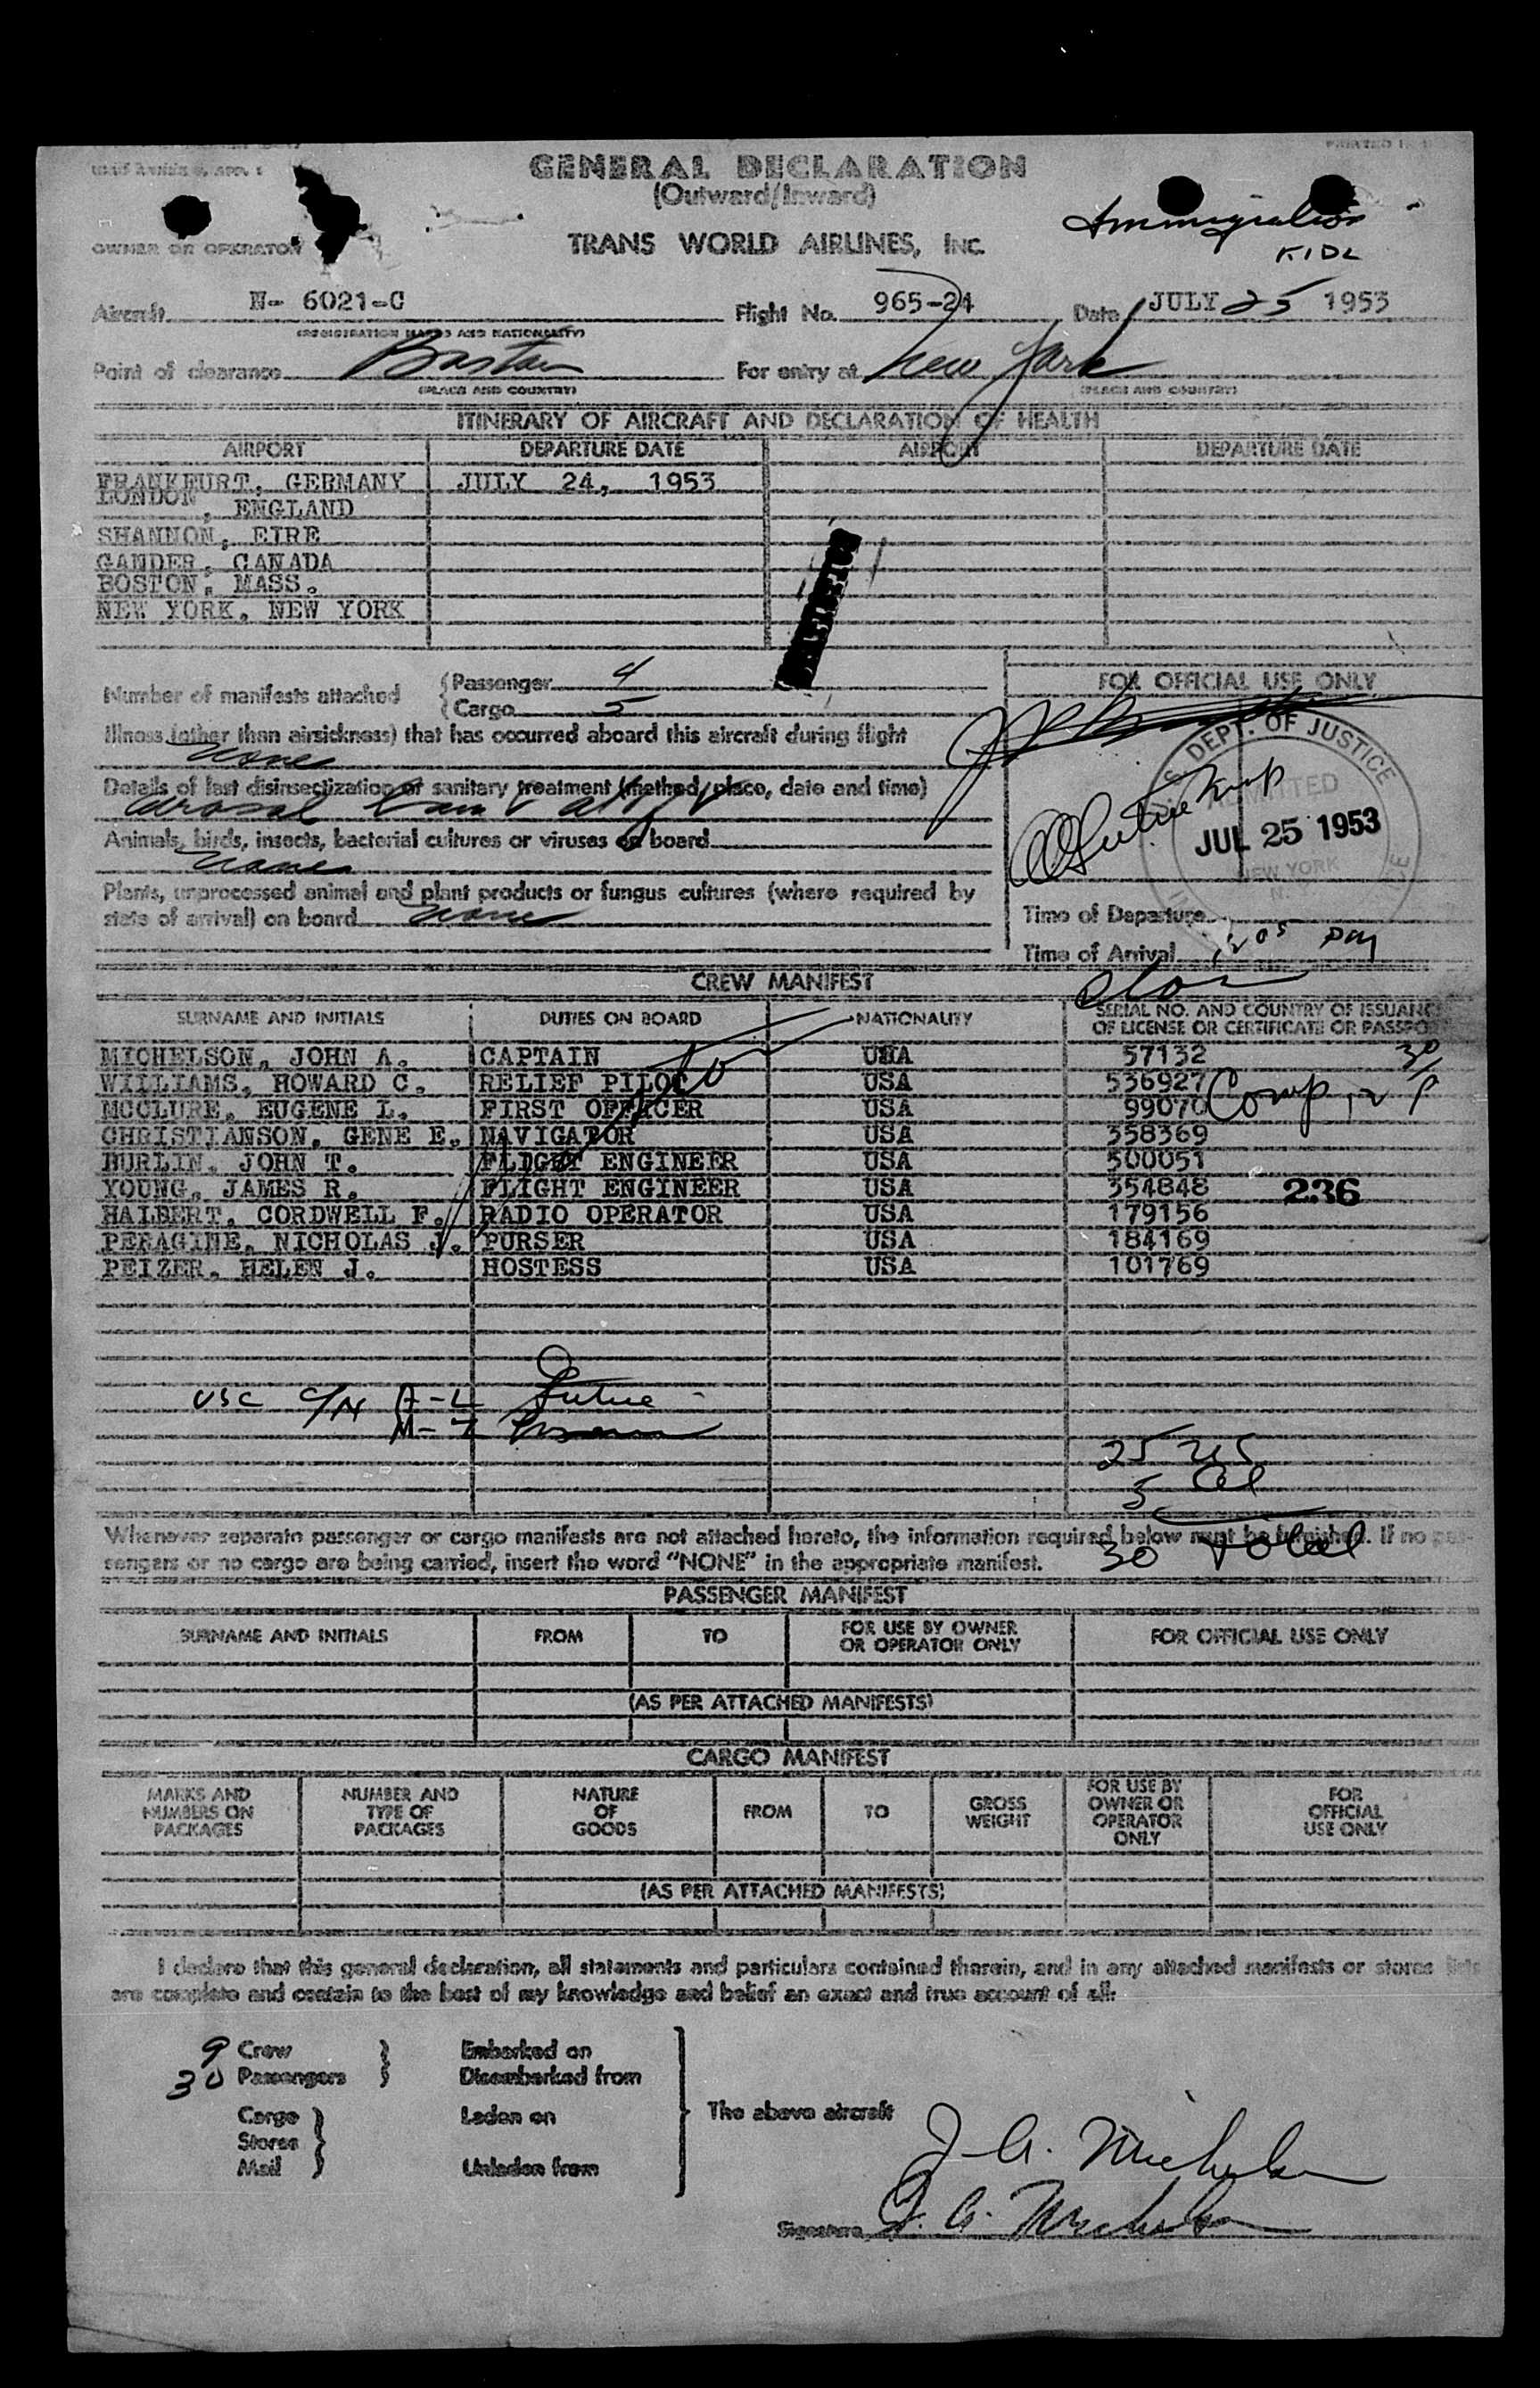 GENERAL DECLARATION
(Outward/Inward)
OWNER OR OPERATOR TRANS WORLD AIRLINES, INC.
Immigration
KIDL
Aircraft N- 6021-C Flight No. 965-24 Date JULY 25 1953
(REGISTRATION MARKS AND NATIONALITY)
Point of clearance Boston For entry at New York
(PLACE AND COUNTRY) (PLACE AND COUNTRY)
ITINERARY OF AIRCRAFT AND DECLARATION OF HEALTH
AIRPORT DEPARTURE DATE AIRPORT DEPARTURE DATE
FRANKFURT, GERMANY JULY 24, 1953
LONDON, ENGLAND
SHANNON, EIRE
GANDER, CANADA
BOSTON, MASS.
NEW YORK, NEW YORK
Number of manifests attached
Passenger 4
Cargo 5
FOR OFFICIAL USE ONLY
Illness (other than airsickness) that has occurred aboard this aircraft during flight
None
Details of last disinsectization or sanitary treatment (method, place, date and time)
Animals, birds, insects, bacterial cultures or viruses on board
None
Plants, unprocessed animal and plant products or fungus cultures (where required by
state of arrival) on board None
DEPT. OF JUSTICE
ADMITTED
JUL 25 1953
NEW YORK
N.
Time of Departure
Time of Arrival 1205 PM
CREW MANIFEST
SURNAME AND INITIALS DUTIES ON BOARD NATIONALITY SERIAL NO. AND COUNTRY OF ISSUANCE
OF LICENSE OR CERTIFICATE OR PASSPORT
MICHELSON, JOHN A. CAPTAIN USA 57132 30
WILLIAMS, HOWARD C. RELIEF PILOT USA 536927
MCCLURE, EUGENE L. FIRST OFFICER USA 99070 Comp
CHRISTIANSON, GENE E. NAVIGATOR USA 358369
BURLIN, JOHN T. FLIGHT ENGINEER USA 500051
YOUNG, JAMES R. FLIGHT ENGINEER USA 354848 236
HALBERT, CORDWELL F. RADIO OPERATOR USA 179156
PERAGINE, NICHOLAS J. PURSER USA 184169
PEIZER, HELEN J. HOSTESS USA 101769
USC C/N A-L
M-Z
25 US
5 Al
30 Total
Whenever separate passenger or cargo manifests are not attached hereto, the information required below must be furnished. If no pas-
sengers or no cargo are being carried, insert the word "NONE" in the appropriate manifest.
PASSENGER MANIFEST
SURNAME AND INITIALS FROM TO FOR USE BY OWNER
OR OPERATOR ONLY FOR OFFICIAL USE ONLY
(AS PER ATTACHED MANIFESTS)
CARGO MANIFEST
MARKS AND
NUMBERS ON
PACKAGES
NUMBER AND
TYPE OF
PACKAGES
NATURE
OF
GOODS
FROM
TO
GROSS
WEIGHT
FOR USE BY
OWNER OR
OPERATOR
ONLY
FOR
OFFICIAL
USE ONLY
(AS PER ATTACHED MANIFESTS)
I declare that this general declaration, all statements and particulars contained therein, and in any attached manifests or stores lists
are complete and contain to the best of my knowledge and belief an exact and true account of all:
9 Crew Embarked on
30 Passengers Disembarked from
Cargo Laden on
Stores
Mail Unladen from
The above aircraft
J. A. Michelson
Signature J. A. Michelson